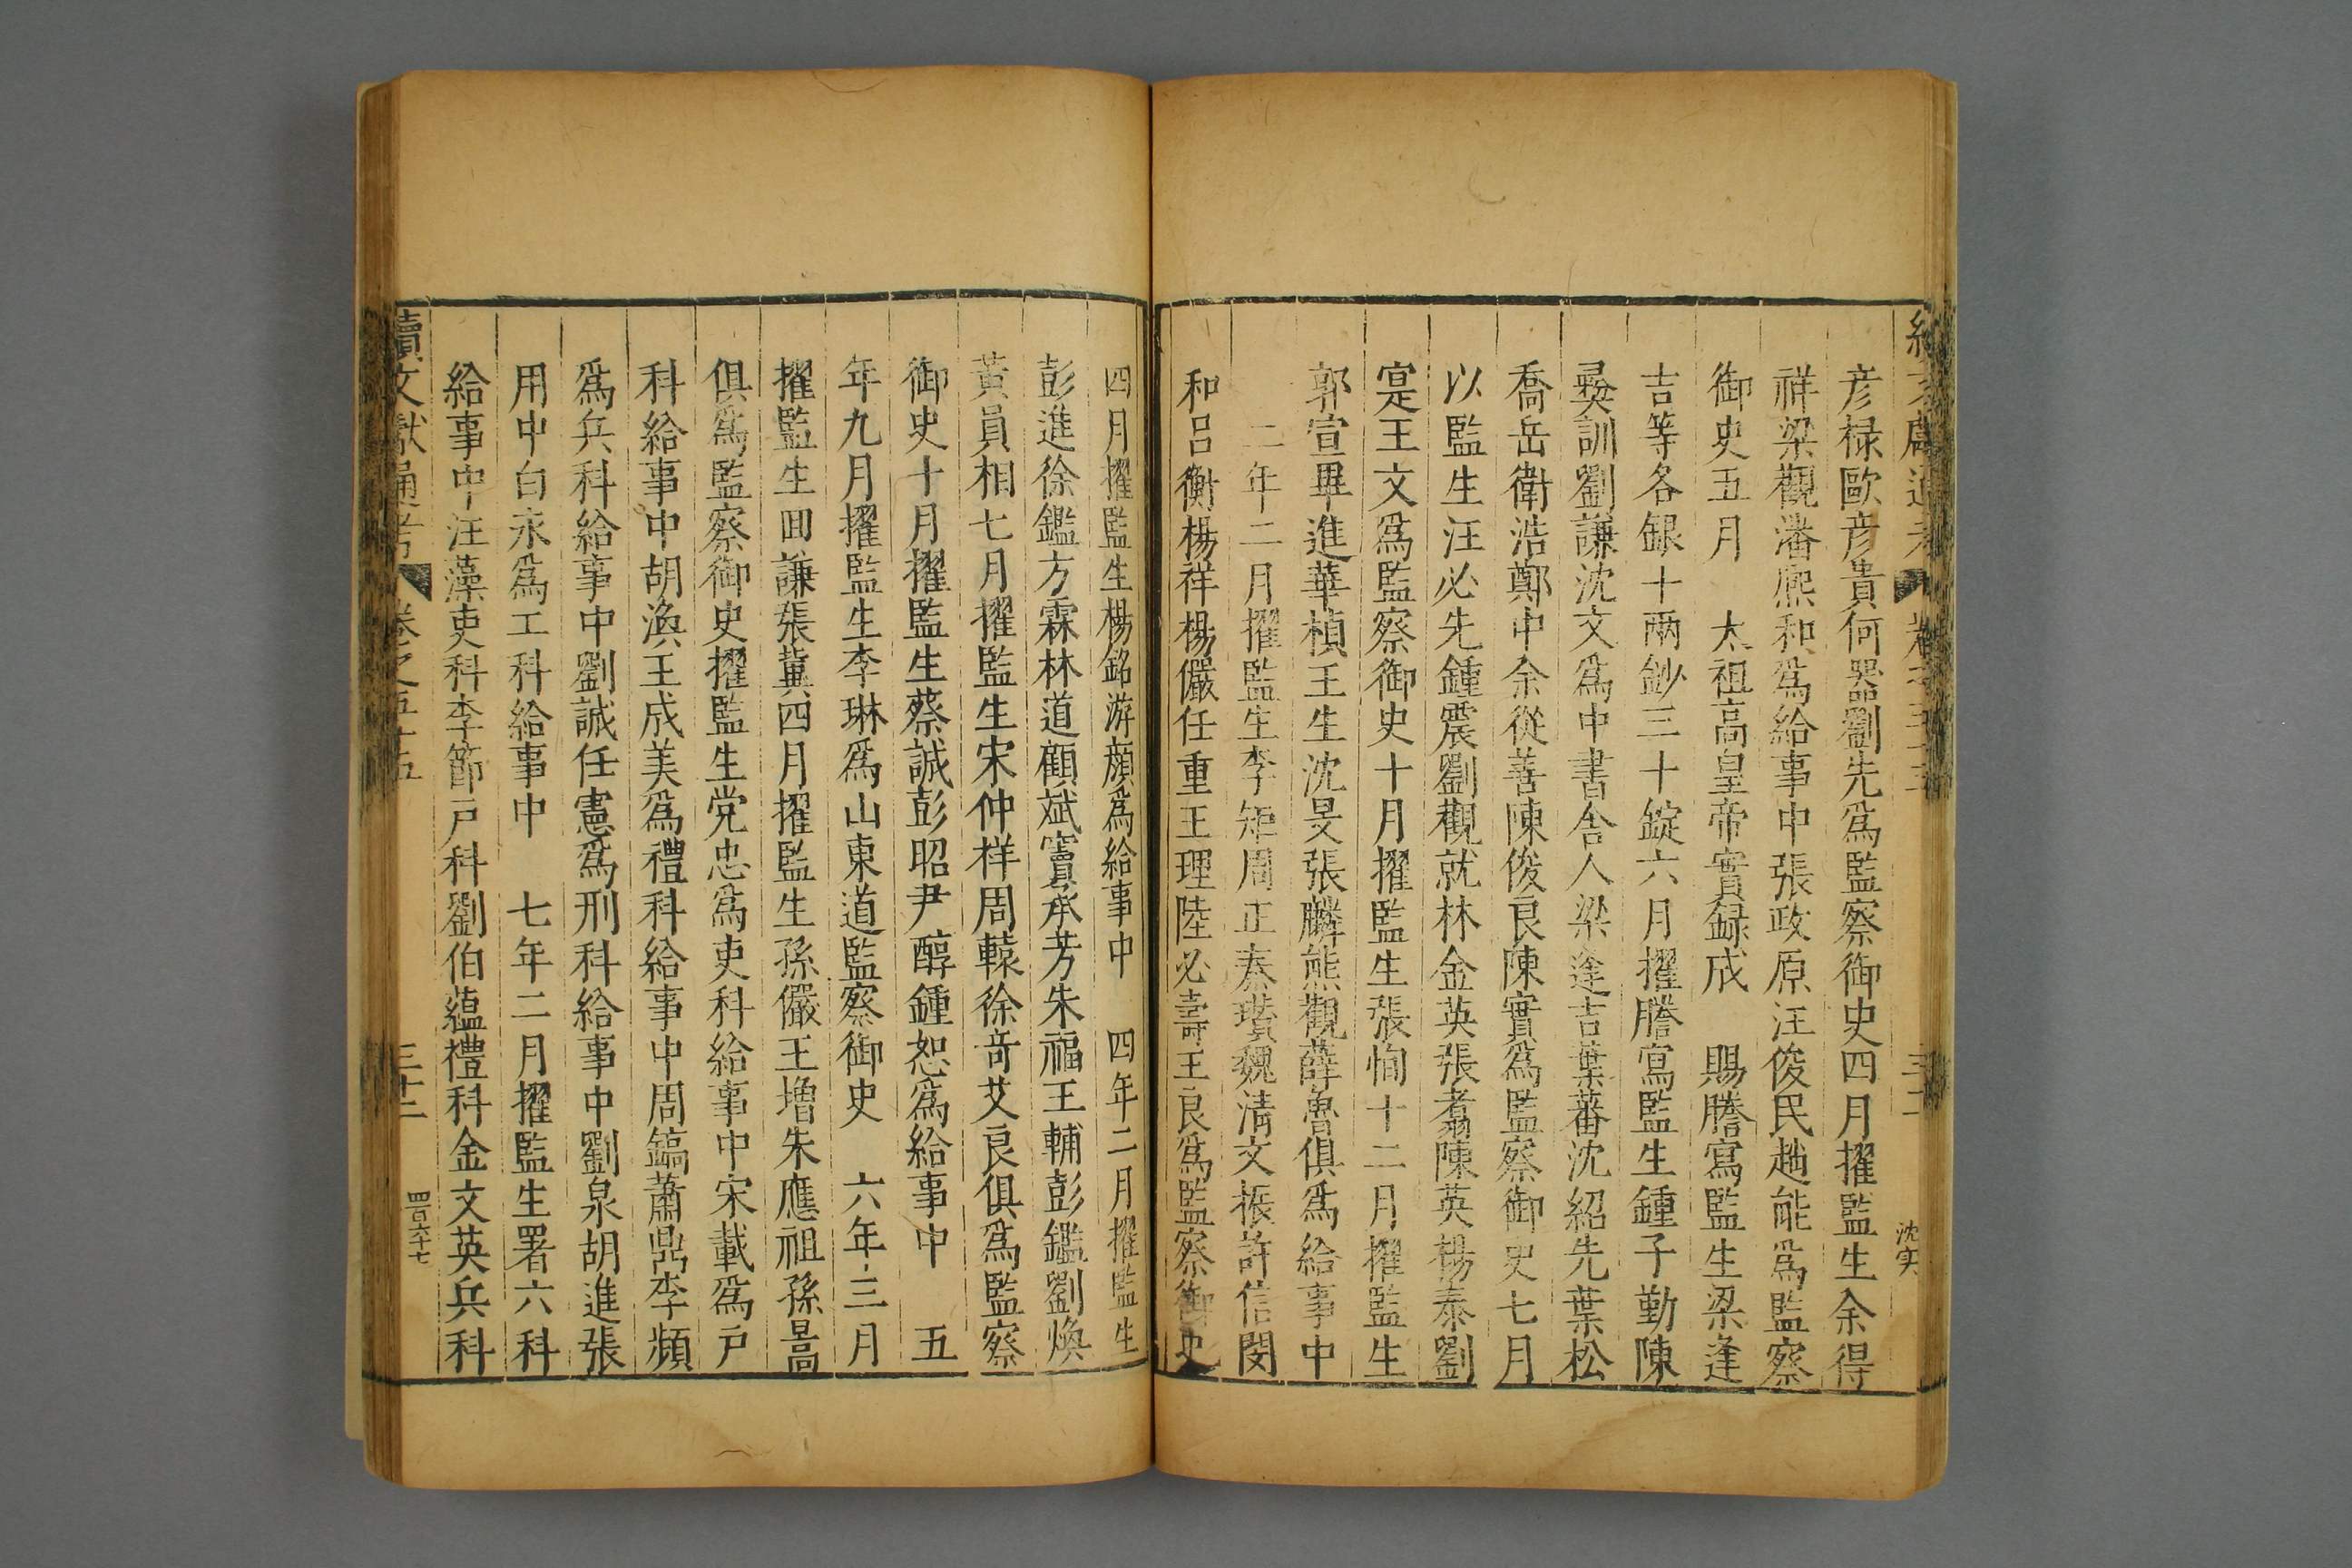 續文獻通考 卷之五十五 三十一 沈実
彦禄歐彦貴何器劉先爲監察御史四月擢監生余得
祥梁觀潘熈和爲給事中張政原汪俊民趙能爲監察
御史五月 太祖高皇帝實録成 賜謄寫監生梁逢
吉等各銀十兩鈔三十錠六月擢謄寫監生鍾子勤陳
彛訓劉謙沈文爲中書舍人梁逢吉葉蕃沈紹先葉松
喬岳衛浩鄭中余從善陳俊良陳實爲監察御史七月
以監生汪必先鍾震劉觀就林金英張翥陳英楊泰劉
寔王文爲監察御史十月擢監生張恂十二月擢監生
郭宣畢進華楨王生沈旻張麟熊觀薛魯俱爲給事中
二年二月擢監生李矩周正秦瓚魏清文振許信閔
和呂衡楊祥楊儼任重王理陸必壽王良爲監察御史
四月擢監生楊銘游顔爲給事中 四年二月擢監生
彭進徐鑑方霖林道顧斌竇承芳朱福王輔彭鑑劉煥
黃員相七月擢監生宋仲祥周轅徐奇艾良俱爲監察
御史十月擢監生蔡誠彭昭尹醇鍾恕爲給事中 五
年九月擢監生李琳爲山東道監察御史 六年三月
擢監生田謙張冀四月擢監生孫儼王增朱應祖孫暠
俱爲監察御史擢監生党忠爲吏科給事中宋載爲戸
科給事中胡渙王成美爲禮科給事中周鎬蕭鼎李頻
爲兵科給事中劉誠任憲爲刑科給事中劉泉胡進張
用中白永爲工科給事中 七年二月擢監生署六科
給事中汪藻吏科李節戸科劉伯蘊禮科金文英兵科
續文獻通考 卷之五十五 三十二 四百六十七